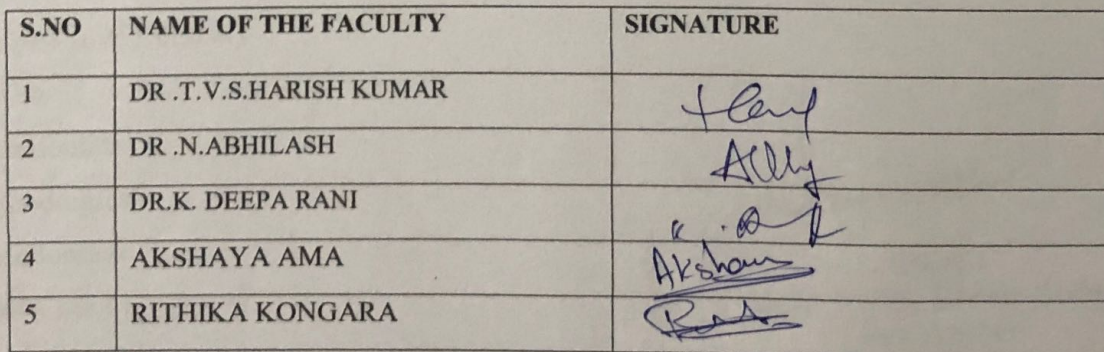 S.NO NAME OF THE FACULTY SIGNATURE
1 DR .T.V.S.HARISH KUMAR
2 DR .N.ABHILASH
3 DR.K. DEEPA RANI
4 AKSHAYA AMA
5 RITHIKA KONGARA